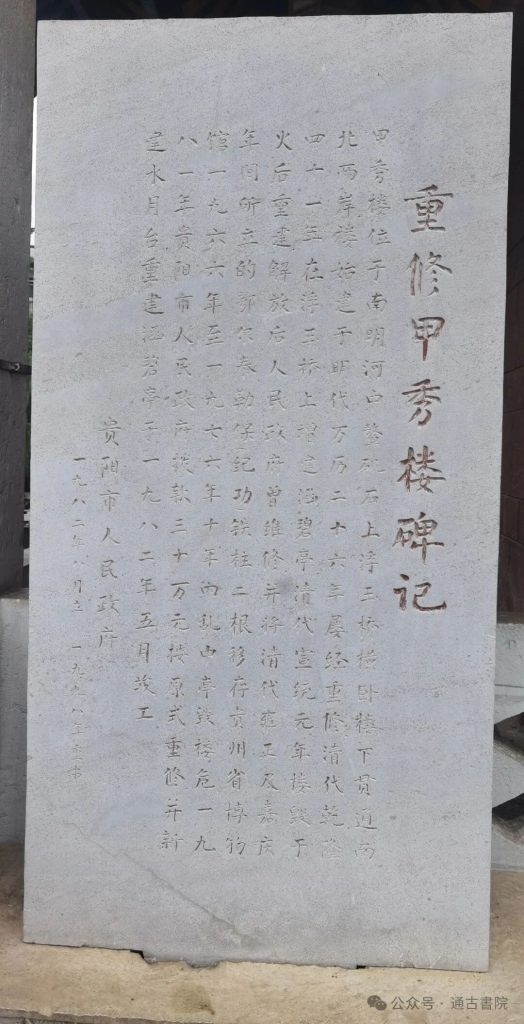 重修甲秀楼碑记
甲秀楼位于南明河中鳌矶石上浮玉桥横卧楼下贯通南
北两岸楼始建于明代万历二十六年屡经重修清代乾隆
四十一年在浮玉桥上增建涵碧亭清代宣统元年楼毁于
火后重建解放后人民政府曾维修并将清代雍正及嘉庆
年间所立的鄂尔泰勒保纪功铁柱二根移存贵州省博物
馆一九六六年至一九七六年十年内乱中亭毁楼危一九
八一年贵阳市人民政府拨款三十万元楼原式重修并新
建水月台重建涵碧亭于一九八二年五月竣工
贵阳市人民政府
一九八二年八月立 一九九八年
公众号·通古書院